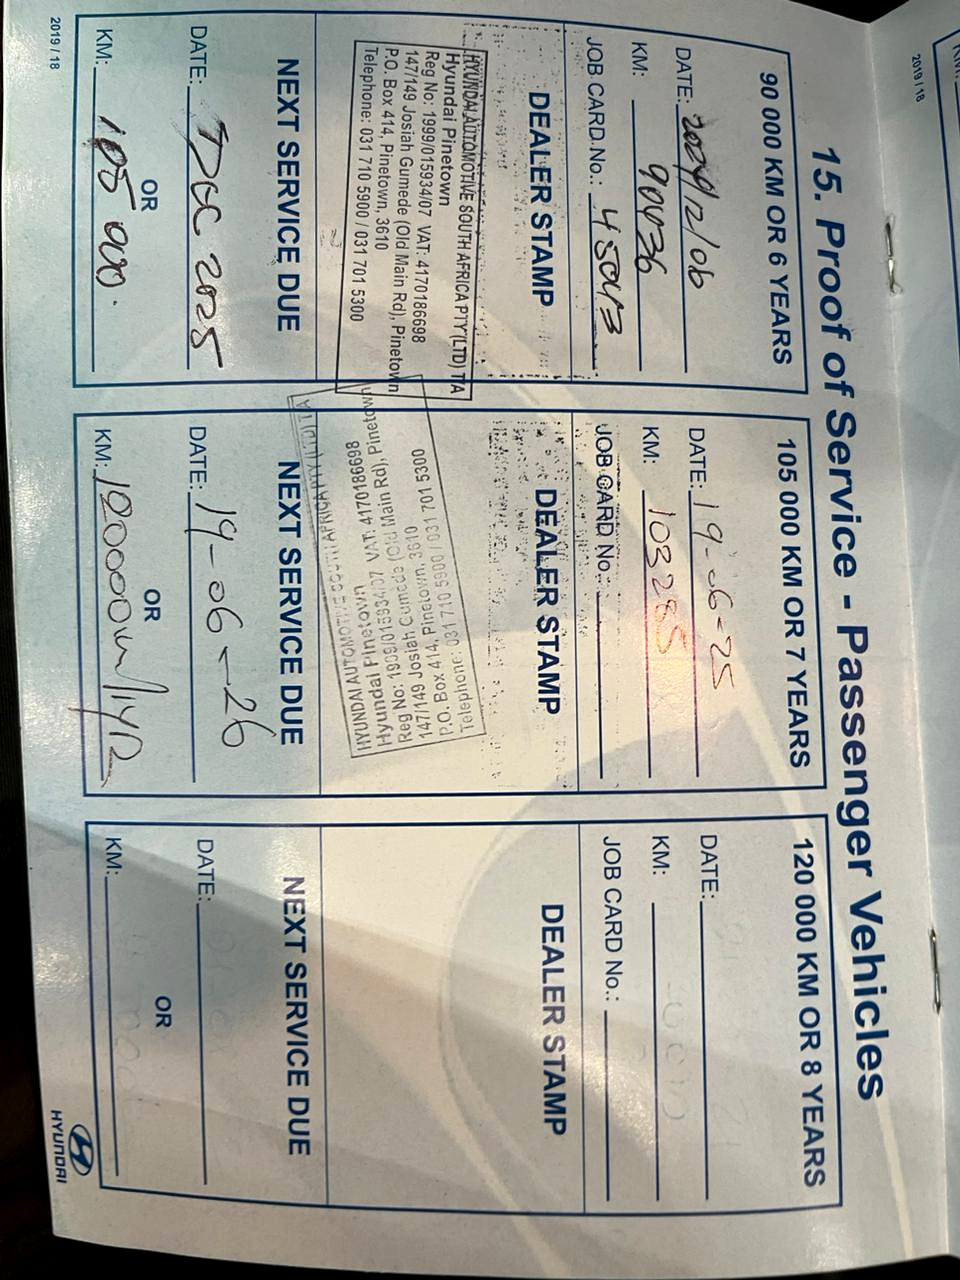 15. Proof of Service - Passenger Vehicles
90 000 KM OR 6 YEARS
DATE: 2024/12/06
KM: 90036
JOB CARD No.:
DEALER STAMP
HYUNDAI AUTOMOTIVE SOUTH AFRICA PTY (LTD) T/A
Hyundai Pinetown
Reg No: 1999/015934/07 VAT: 4170186698
147/149 Josiah Gumede (Old Main Rd), Pinetown
P.O. Box 414, Pinetown, 3610
Telephone: 031 710 5900 / 031 701 5300
NEXT SERVICE DUE
DATE: DEC 2025
OR
KM: 105 000.
105 000 KM OR 7 YEARS
DATE: 19-06-25
KM: 103285
JOB CARD No.:
DEALER STAMP
HYUNDAI AUTOMOTIVE SOUTH AFRICA PTY (LTD) T/A
Hyundai Pinetown
Reg No: 1999/015934/07 VAT: 4170186698
147/149 Josiah Gumede (Old Main Rd), Pinetown
P.O. Box 414, Pinetown, 3610
Telephone: 031 710 5900 / 031 701 5300
NEXT SERVICE DUE
DATE: 19-06-26
OR
KM: 120000km/1YR
120 000 KM OR 8 YEARS
DATE:
KM:
JOB CARD No.:
DEALER STAMP
NEXT SERVICE DUE
DATE:
OR
KM:
2019 / 18
HYUNDAI
2019 / 18